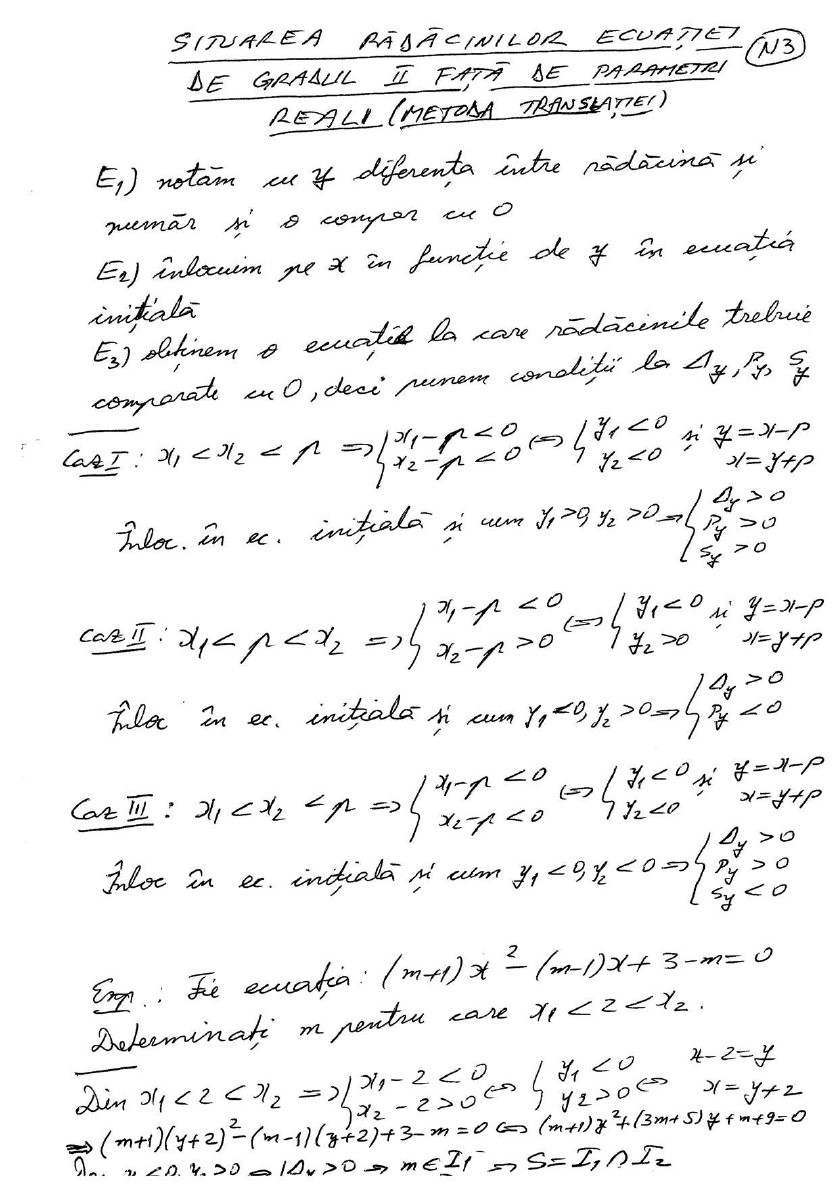 SITUAREA RĂDĂCINILOR ECUAȚIEI N3
DE GRADUL II FAȚĂ DE PARAMETRI
REALI (METODA TRANSLAȚIEI)
E₁) notăm cu y diferența între rădăcină și
număr și o compar cu 0
E₂) înlocuim pe x în funcție de y în ecuația
inițială
E₃) obținem o ecuație la care rădăcinile trebuie
comparate cu 0, deci punem condiții la Δy, Py, Sy
Caz I : x₁ < x₂ < p ⇒ { x₁-p < 0 x₂-p < 0 ⇔ { y₁ < 0 y₂ < 0 și y = x-p x = y+p
Înloc. în ec. inițială și cum y₁ > 0, y₂ > 0 ⇒ { Δy > 0 Py > 0 Sy > 0
Caz II : x₁ < p < x₂ ⇒ { x₁-p < 0 x₂-p > 0 ⇔ { y₁ < 0 y₂ > 0 și y = x-p x = y+p
Înloc în ec. inițială și cum y₁ < 0, y₂ > 0 ⇒ { Δy > 0 Py < 0
Caz III : x₁ < x₂ < p ⇒ { x₁-p < 0 x₂-p < 0 ⇔ { y₁ < 0 y₂ < 0 și y = x-p x = y+p
Înloc în ec. inițială și cum y₁ < 0, y₂ < 0 ⇒ { Δy > 0 Py > 0 Sy < 0
Exp.: Fie ecuația: (m+1)x² - (m-1)x + 3-m = 0
Determinați m pentru care x₁ < 2 < x₂.
Din x₁ < 2 < x₂ ⇒ { x₁-2 < 0 x₂-2 > 0 ⇔ { y₁ < 0 y2 > 0 ⇔ x-2 = y x = y+2
⇒ (m+1)(y+2)² - (m-1)(y+2) + 3-m = 0 ⇔ (m+1)y² + (3m+5)y + m+9 = 0
y₂ > 0 ⇒ { Δy > 0 ⇒ m ∈ I₁ ⇒ S = I₁ ∩ I₂